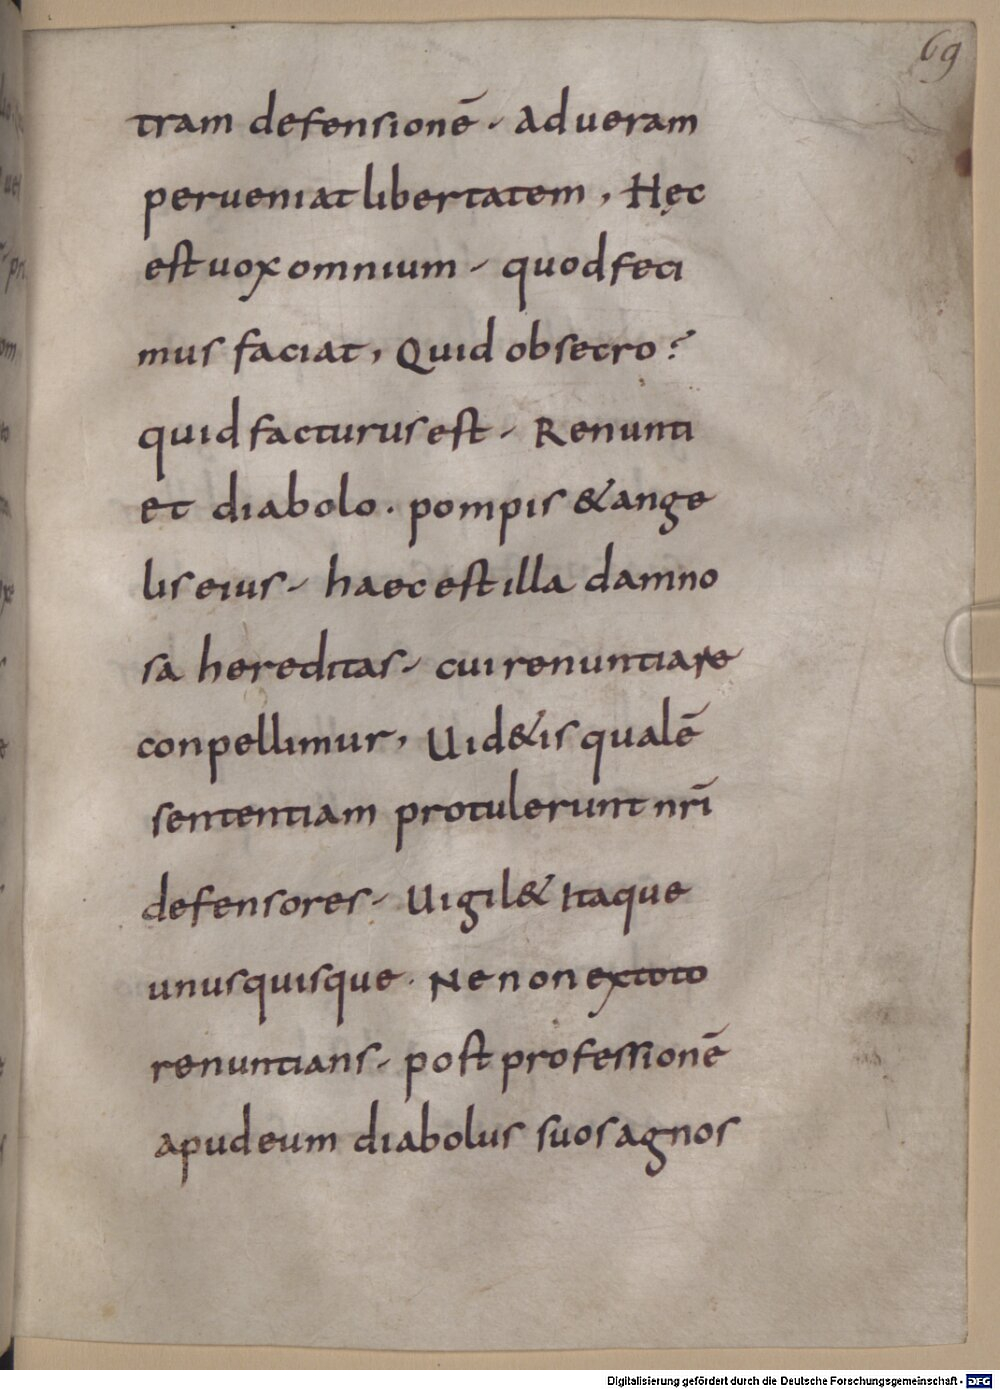 69
tram defensionē. Ad ueram
perueniat libertatem, Hęc
est uox omnium. quod feci
mus faciat, Quid obsecro?
quid facturus est. Renunti
et diabolo. pompis & ange
lis eius. haec est illa damno
sa hereditas. cui renuntiare
conpellimur, Uid&is qualē
sententiam protulerunt nr̄i
defensores. Uigil& itaque
unusquisque. Ne non extoto
renuntians. post professionē
apud eum diabolus suos agnos
Digitalisierung gefördert durch die Deutsche Forschungsgemeinschaft - DFG